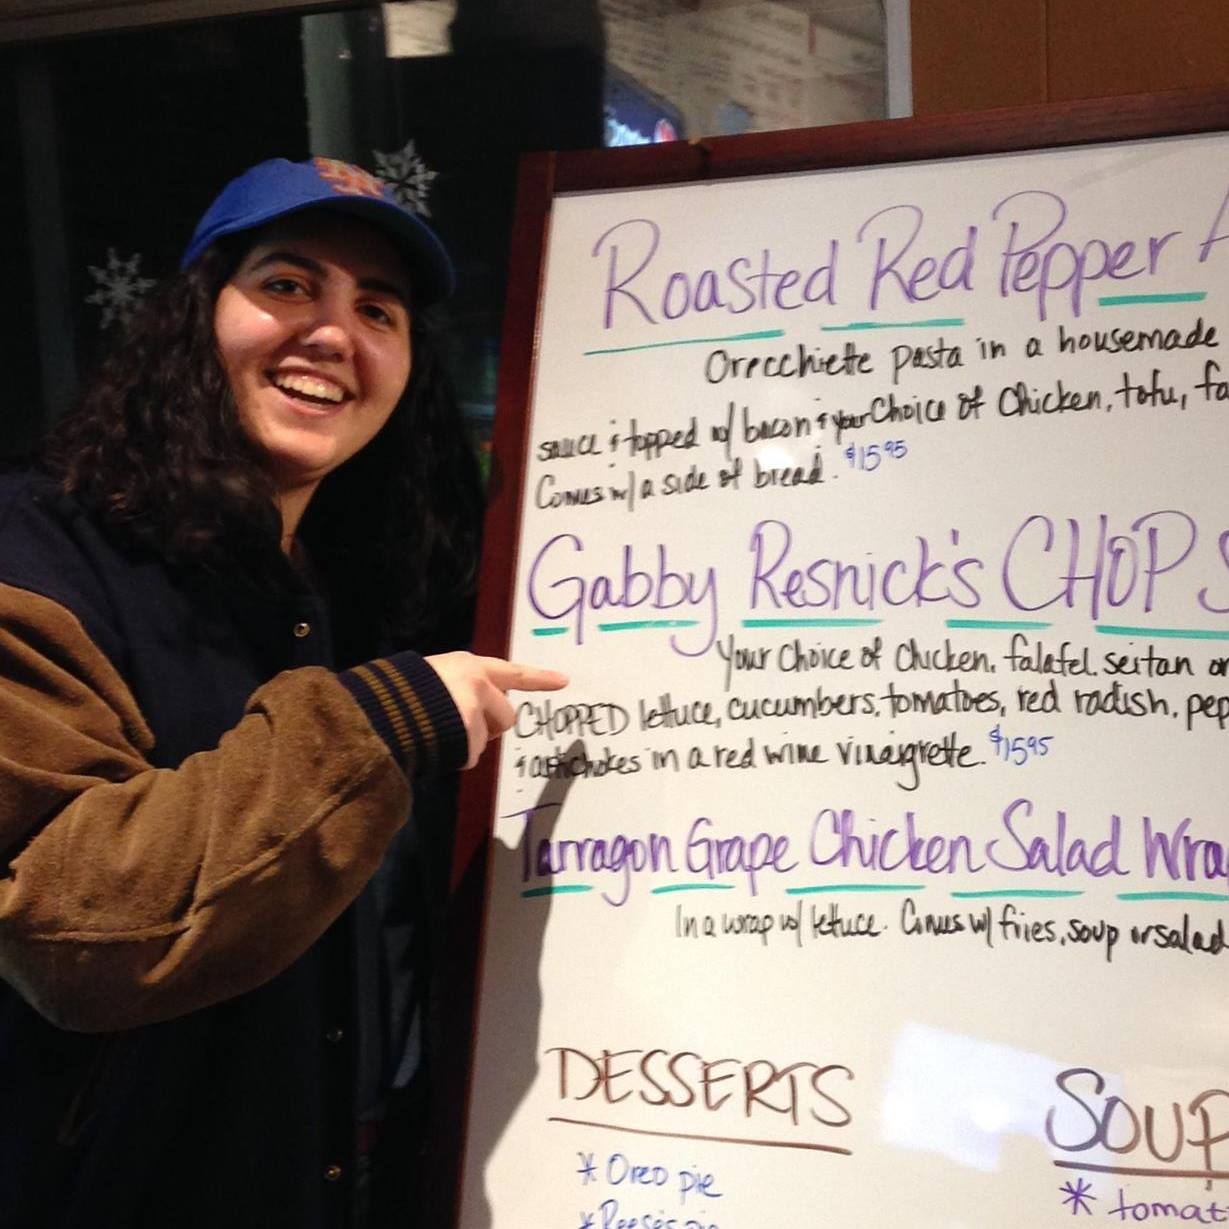 Roasted Red Pepper A
Orecchiette pasta in a housemade
sauce & topped w/ bacon & your Choice of Chicken, tofu, fa
Comes w/ a side of bread. $15.95
Gabby Resnick's CHOP S
Your Choice of Chicken, falafel, seitan or
CHOPPED lettuce, cucumbers, tomatoes, red radish, pep
& artichokes in a red wine vinaigrette. $15.95
Tarragon Grape Chicken Salad Wra
In a wrap w/ lettuce. Comes w/ fries, soup or salad
DESSERTS
* Oreo pie
* Reese's pie
SOUP
* tomat